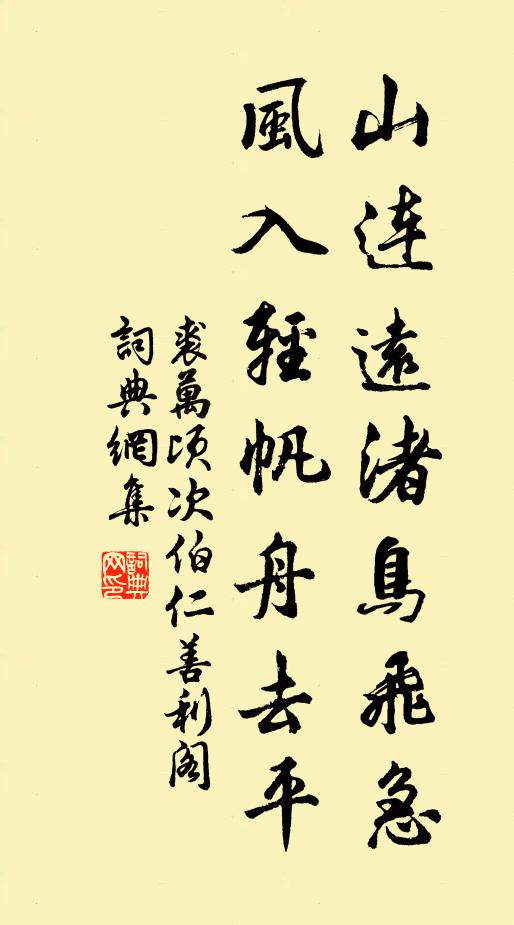 山連遠渚鳥飛急
風入輕帆舟去平
裘萬頃次伯仁善利閣
詞典網集
詞典
网印